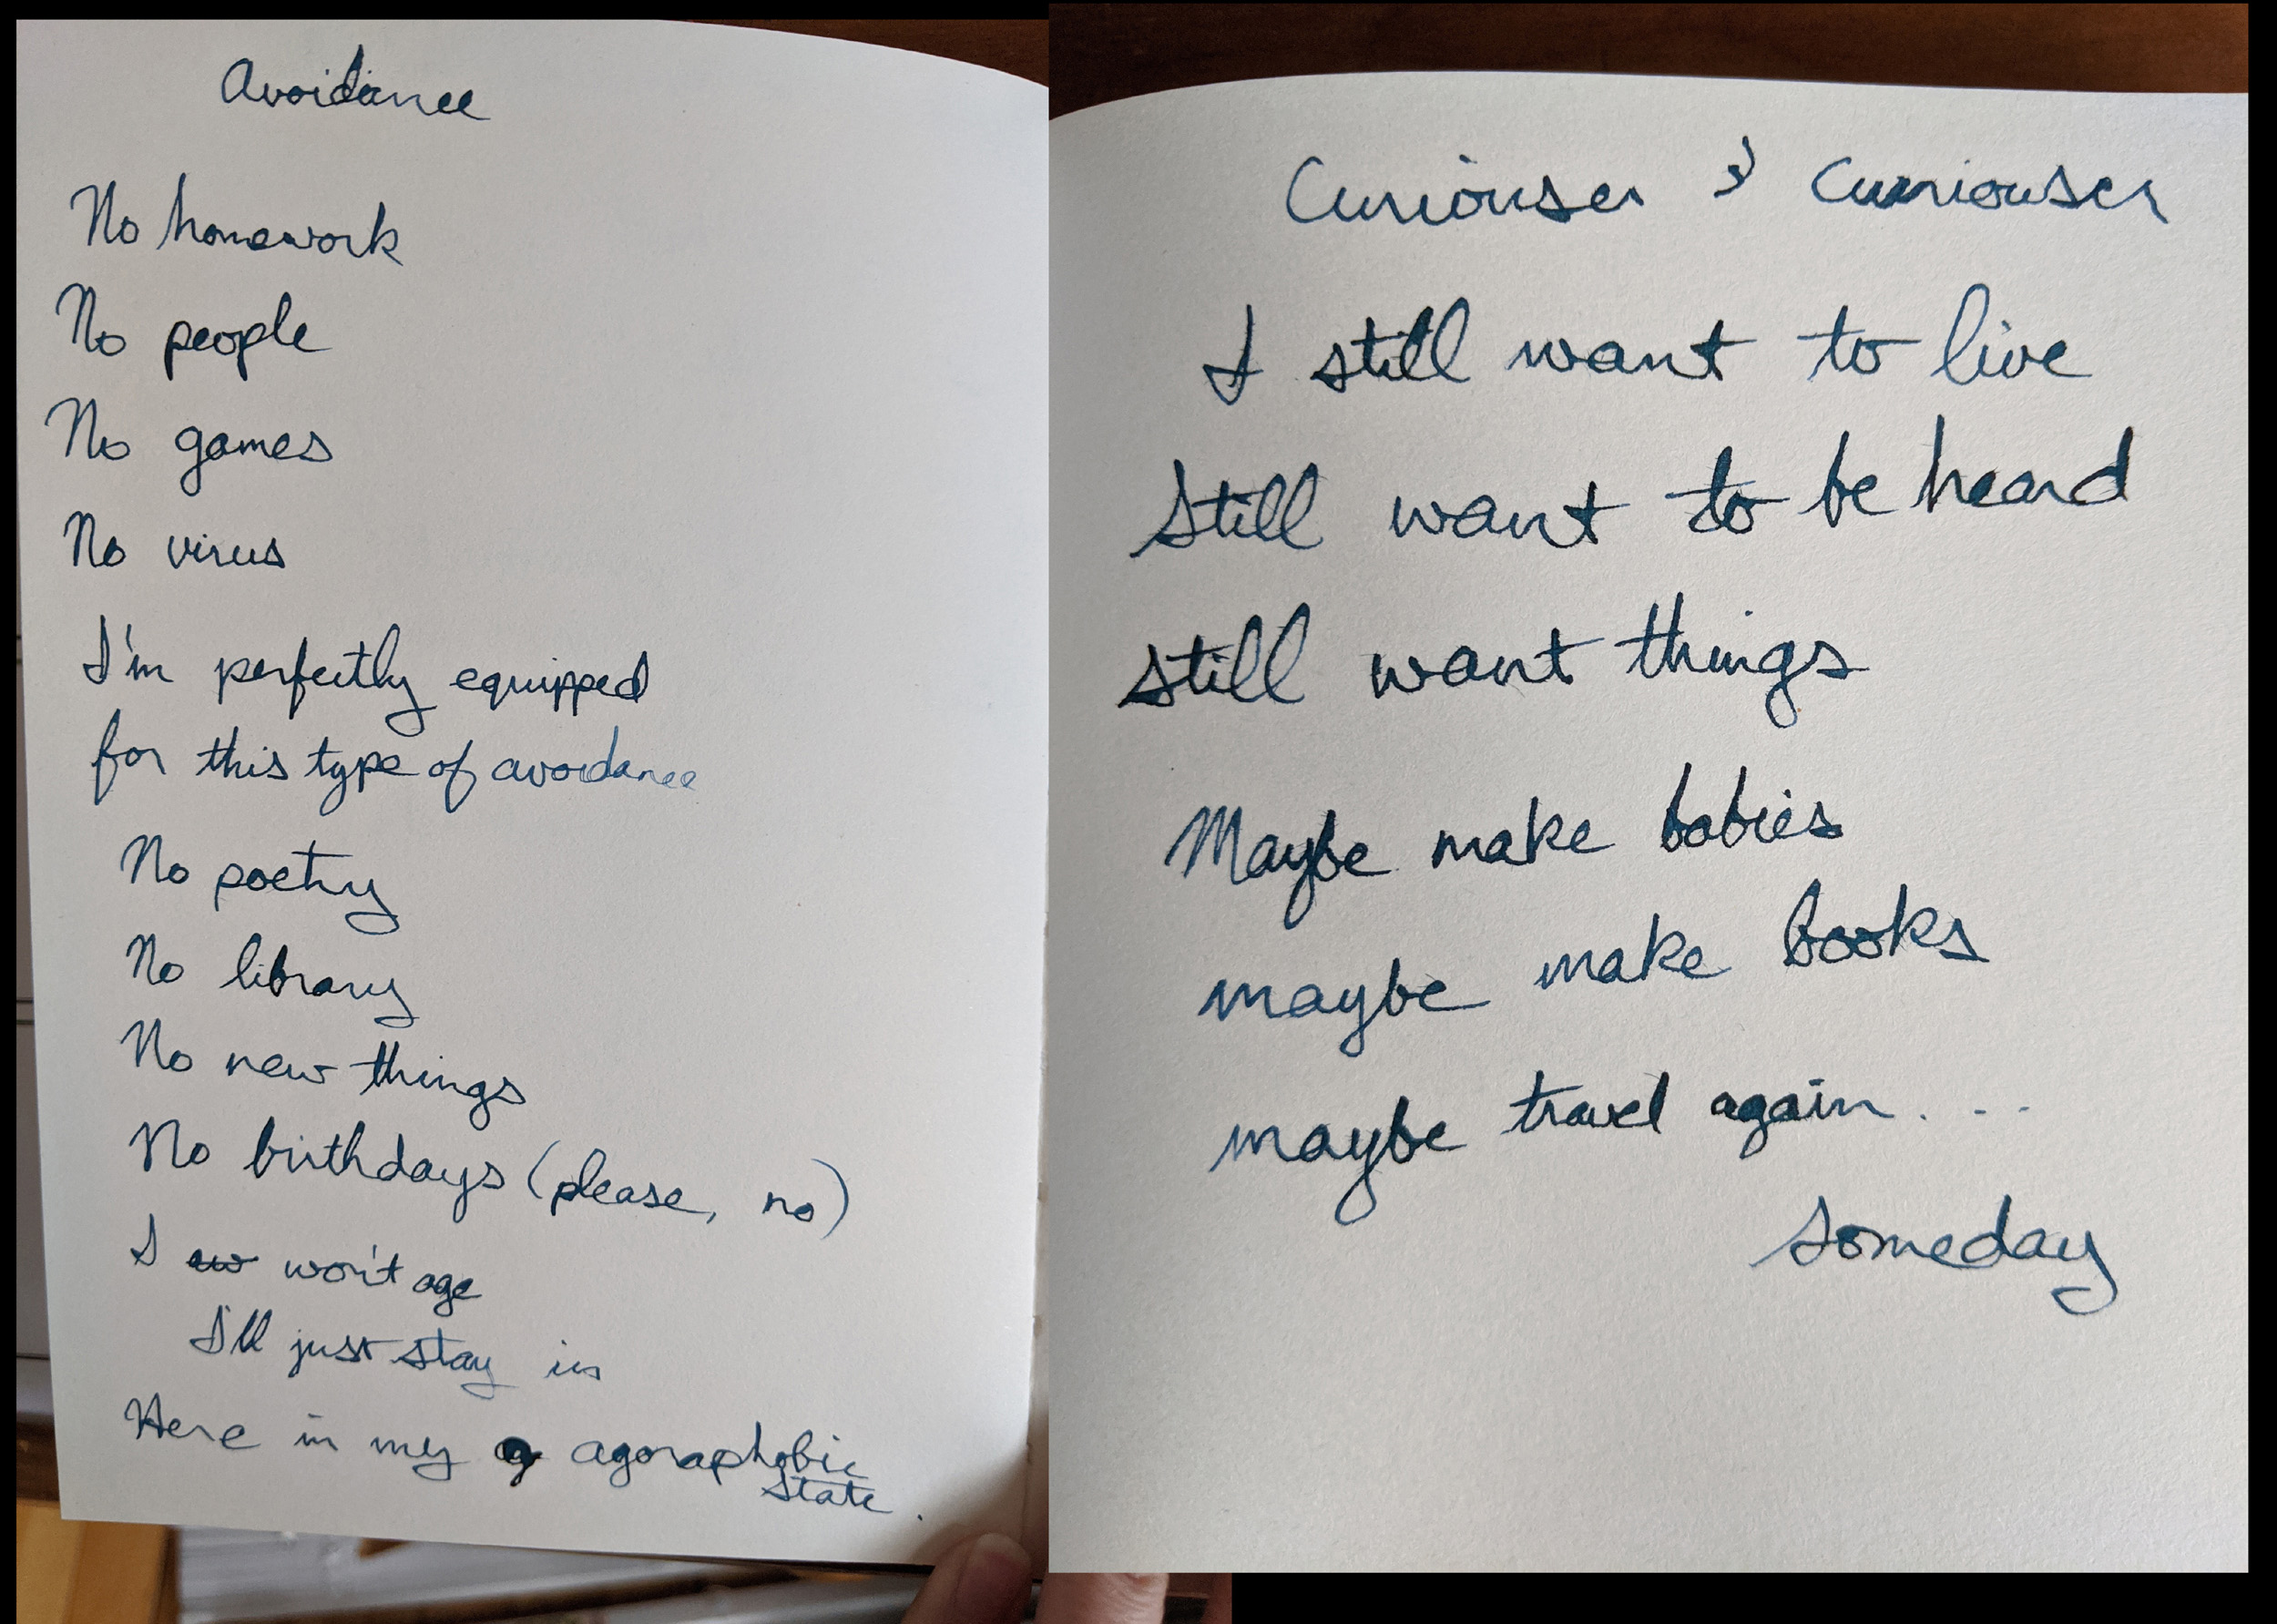 Avoidance
No homework
No people
No games
No virus
I'm perfectly equipped
for this type of avoidance
No poetry
No library
No new things
No birthdays (please, no)
I won't age
I'll just stay in
Here in my agoraphobic
state.
Curiouser & Curiouser
I still want to live
Still want to be heard
still want things
Maybe make babies
maybe make books
maybe travel again....
Someday